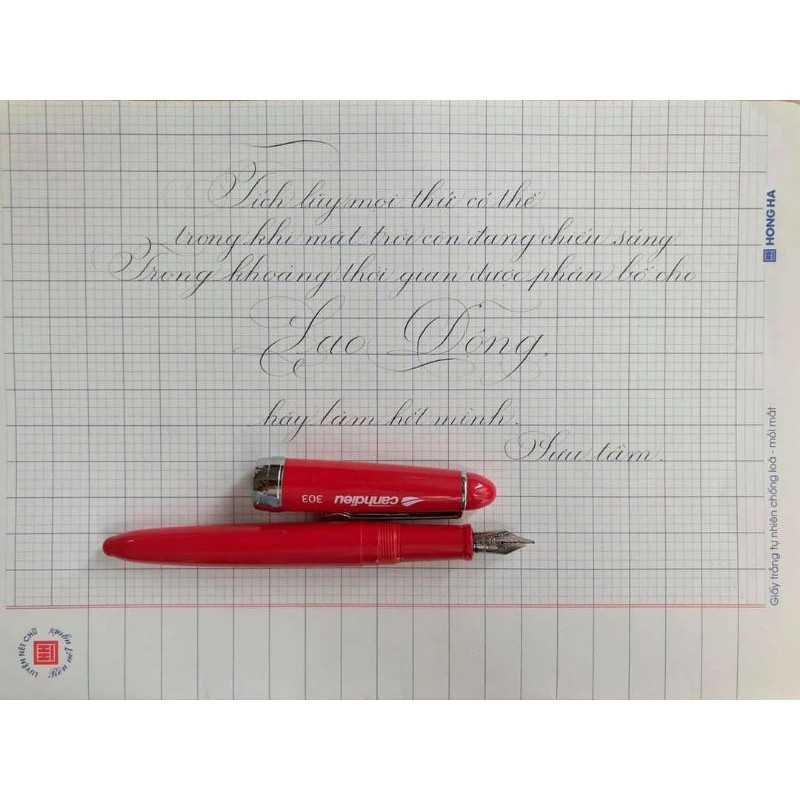 Tích lũy mọi thứ có thể
trong khi mặt trời còn đang chiếu sáng
Trong khoảng thời gian được phân bổ cho
Lao Động,
hãy làm hết mình.
Sưu tầm.
canhdieu 303
HONG HA
Giấy trắng tự nhiên chống loá - mỏi mắt
LUYỆN NÉT CHỮ
Rèn nết người